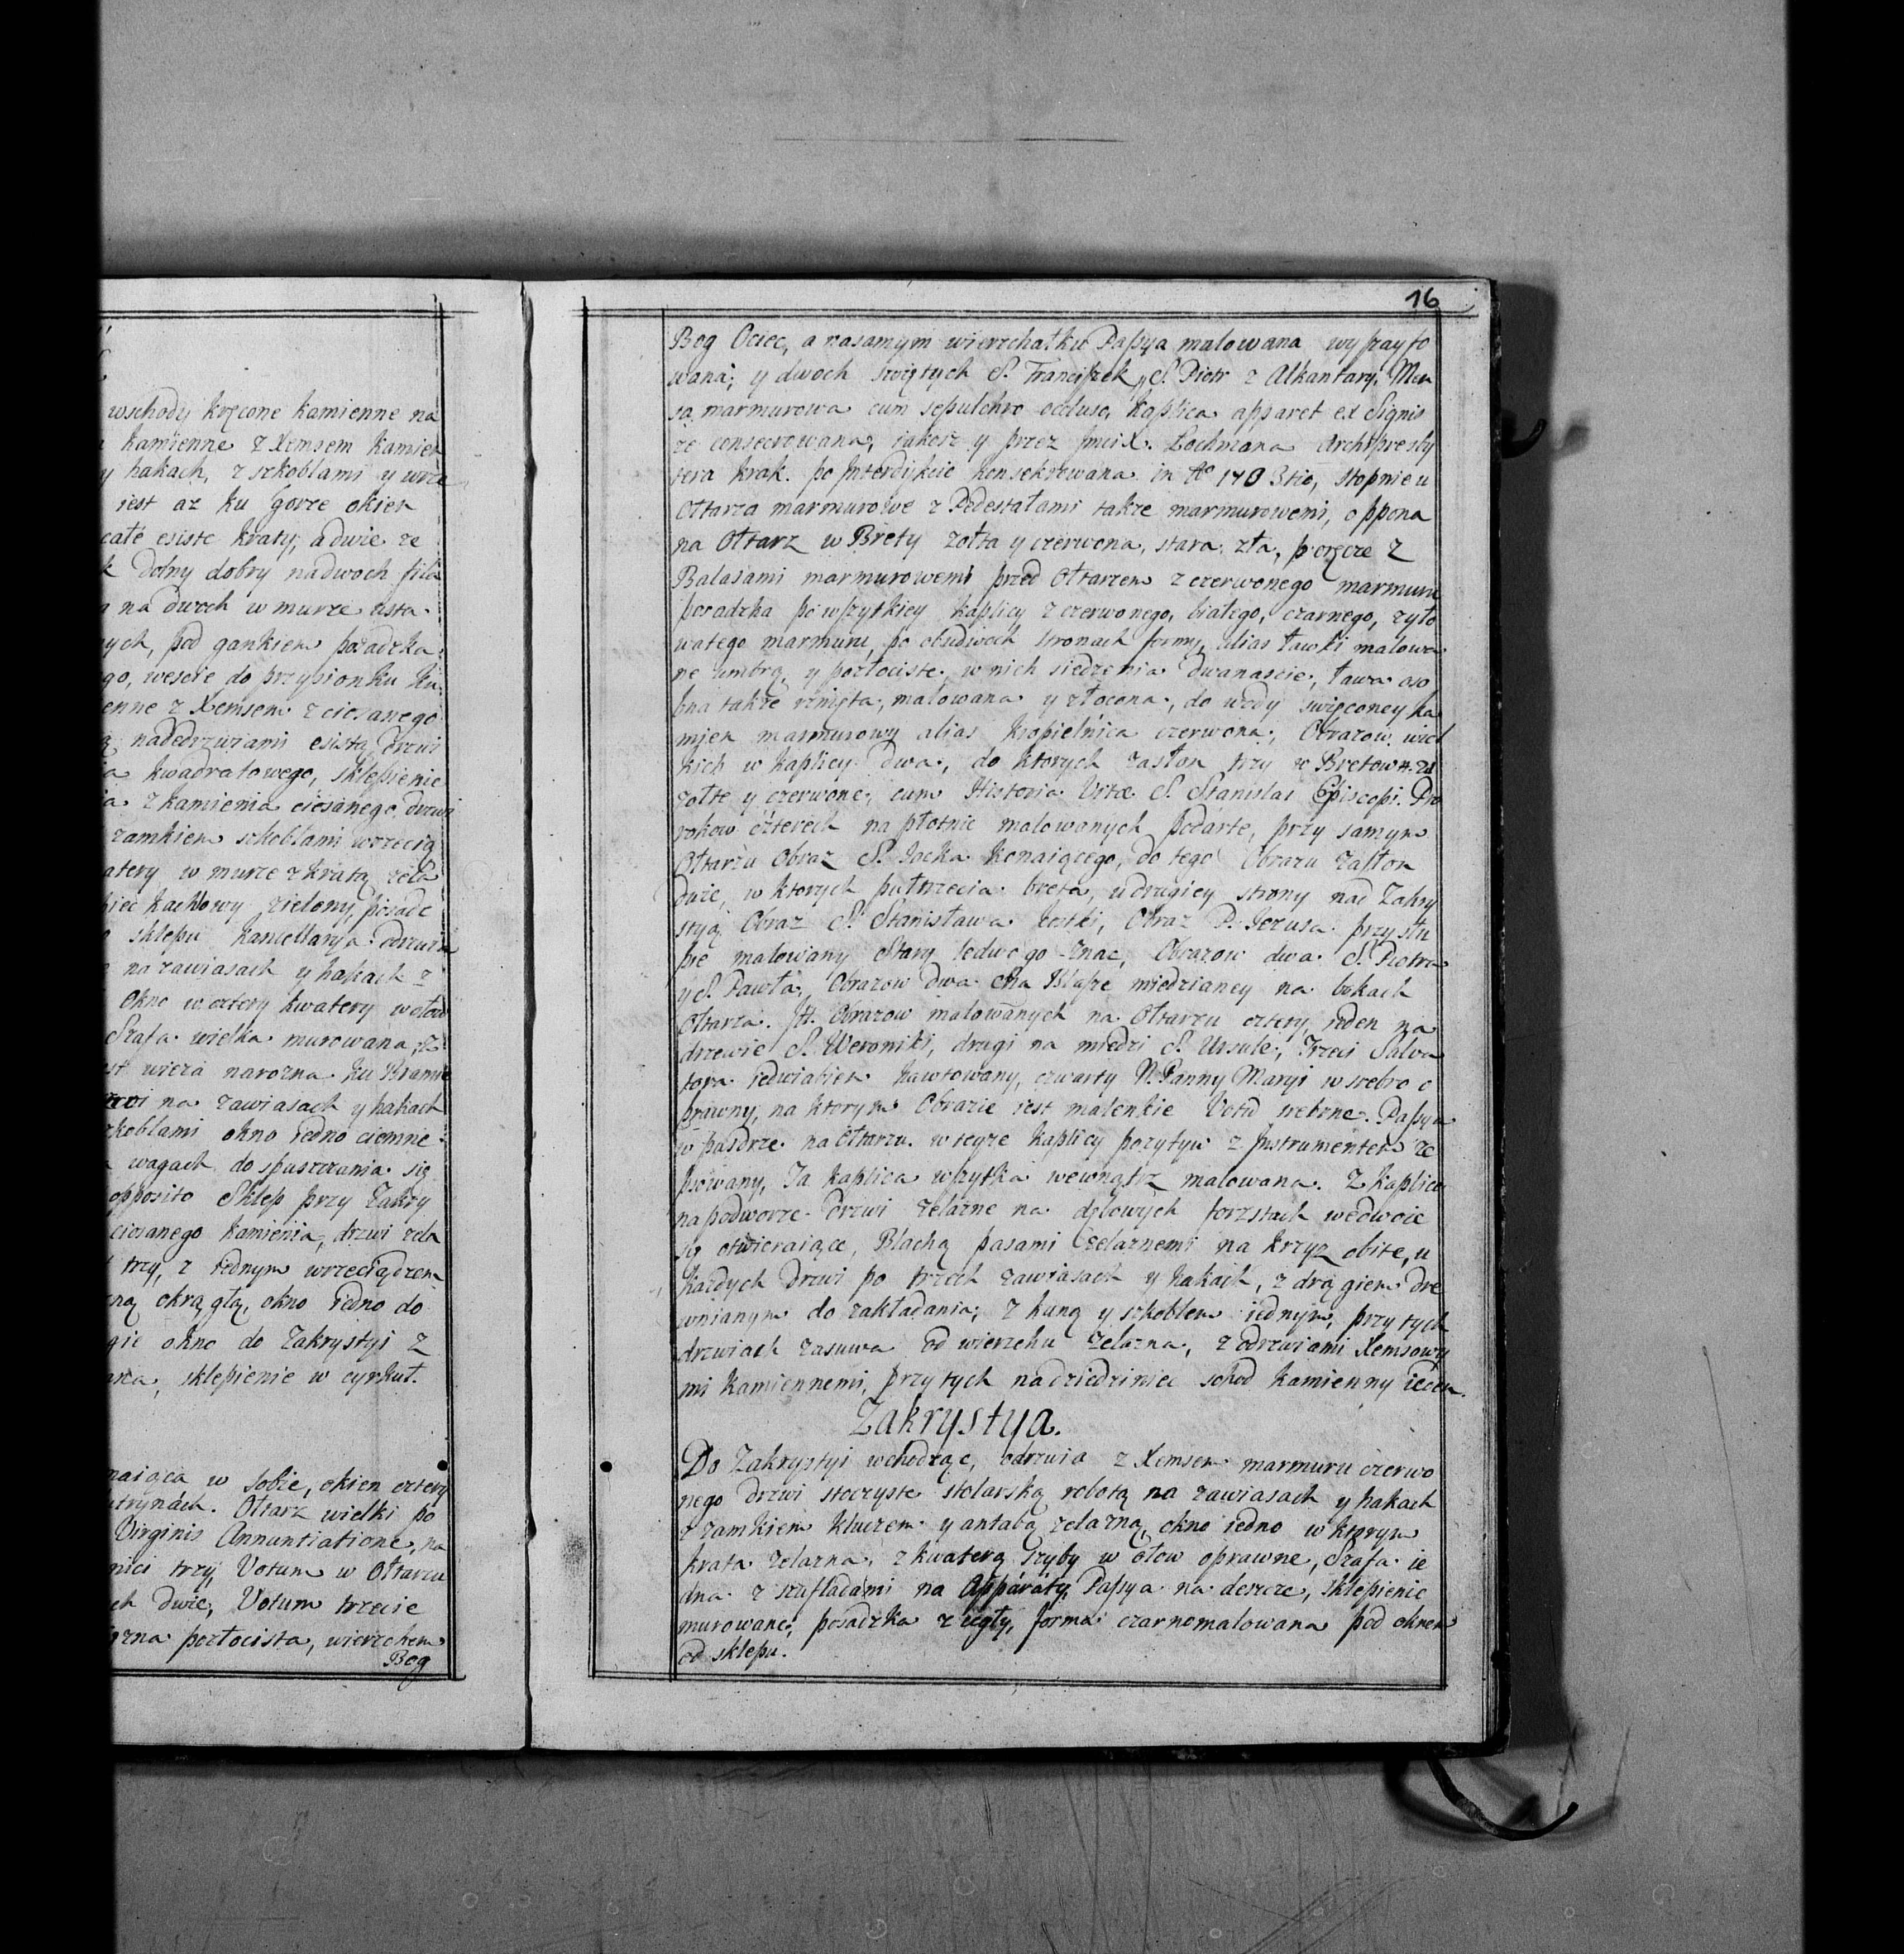 wschody kręcone kamienne na
kamienne z Xemsem kamien
y hakach, z szkoblami y wrze
iest az ku gorze okien
całe esiste kraty, a dwie ze
dolny dobry na dwoch fila
na dwoch w murze usta.
ych, pod gankiem posadzka
go, wescie do przysionku ku
enne z Xemsem z ciosanego
nadedrzwiami esistą drzwi
kwadratowego, sklepienie
z kamienia ciosanego, drzwi
zamkiem szkoblami wrzecią
atery w murze z kratą zela
piec kachlowy zielony, posadz
sklepu kancellarya odrzwia
na zawiasach y hakach z
Okno w cztery kwatery w ołow
Szafa wielka murowana, z
st wieza narozna ku Bramie
drzwi na zawiasach y hakach
szkoblami okno iedno ciemne
wagach do spuszczania się
opposito Sklep przy Zakry
ciosanego kamienia, drzwi zela
trzy, z iednym wrzeciądzem
ną okrągłą, okno iedno do
gie okno do Zakrystyi z
ana, sklepienie w cyrkuł.
maiąca w sobie, okien cztery
utrynach. Ołtarz wielki po
Virginis Annuntiatione, na
nici trzy, Votum w Ołtarzu
ch dwie, Votum trzecie
ozna pozłocista, wierzchem
Bog
16
Bog Ociec, a nasamym wierzchałku Paſsya malowana wyſzayfo
wana; y dwoch swiętych S. Franciſzek, S. Piotr z Alkantary. Men
sa marmurowa cum sepulchro occluso, kaplica apparet ex Signis
ze consecrowana, iakosz y przez Jmci X. Lochmana Archipresby
tera krak. po Jnterdykcie konsekrowana in Aº 1703tio, stopnie u
Ołtarza marmurowe z Pedestałami takze marmurowemi, oppona
na Ołtarz w Brety zołta y czerwona, stara, zła, poręcze z
Balasami marmurowemi przed Ołtarzem z czerwonego marmuru
posadzka po wſzytkiey kaplicy z czerwonego, białego, czarnego, zyło
watego marmuru, po obudwoch stronach formy, alias ławki malowa
ne umbrą, y pozłociste, w nich siedzenia dwanascie, ława oso
bna takze rznięta, malowana y złocona, do wody swięconey ka
mien marmurowy alias kropielnica czerwona, Obrazow wiel
kich w kaplicy dwa, do ktorych zasłon trzy w Bretow
zołte y czerwone, cum Historia Vitæ S. Stanislai Episcopi. Pro
rokow czterech na płotnie malowanych podarte, przy samym
Ołtarzu Obraz S. Jacka konaiącego, do tego Obrazu zasłon
dwie, w ktorych pułtrzecia breta, u drugiey strony nad Zakry
styą Obraz S. Stanisława kostki, Obraz P. Jezusa przy słu
pie malowany Stary ledwo go znac, Obrazow dwa S. Piotra
y S. Pawła, Obrazow dwa na Blaſze miedzianey na bokach
Ołtarza. It. Obrazow malowanych na Ołtarzu cztery, ieden na
drzewie S. Weroniki, drugi na miedzi S. Ursule, Trzeci Salva
tora iedwabiem hawtowany, czwarty N. Panny Maryi w srebro o
prawny, na ktorym Obrazie iest malenkie Votu srebrne. Paſsya
w paszdrze na Ołtarzu. w teyze kaplicy pozytyw z Jnstrumentem ze
psowany, Ta kaplica wſzytka wewnątrz malowana. Z kaplice
na podworze drzwi zelazne na dęlowych forsztach wedwoie
się otwieraiące, Blachą pasami zelaznemi na krzyz obite, u
kazdych drzwi po trzech zawiasach y hakach, z drągiem dre
wnianym do zakładania, z kuną y szkoblem iednym, przy tych
drzwiach zasuwa od wierzchu zelazna, z odrzwiami Xemsowy
mi kamiennemi, przy tych na dziedziniec schod kamienny ieden.
Zakrystya.
Do Zakrystyi wchodząc, odrzwia z Xemsem marmuru czerwo
nego drzwi stoczyste stolarską robotą na zawiasach y hakach
z zamkiem kluczem y antabą zelazną, okno iedno w ktorym
krata zelazna, z kwaterą szyby w ołow oprawne, Szafa ie
dna z szufladami na Apparaty, Paſsya na deszcze, sklepienie
murowane, posadzka z cegły, forma czarno malowana pod oknem
od sklepu.